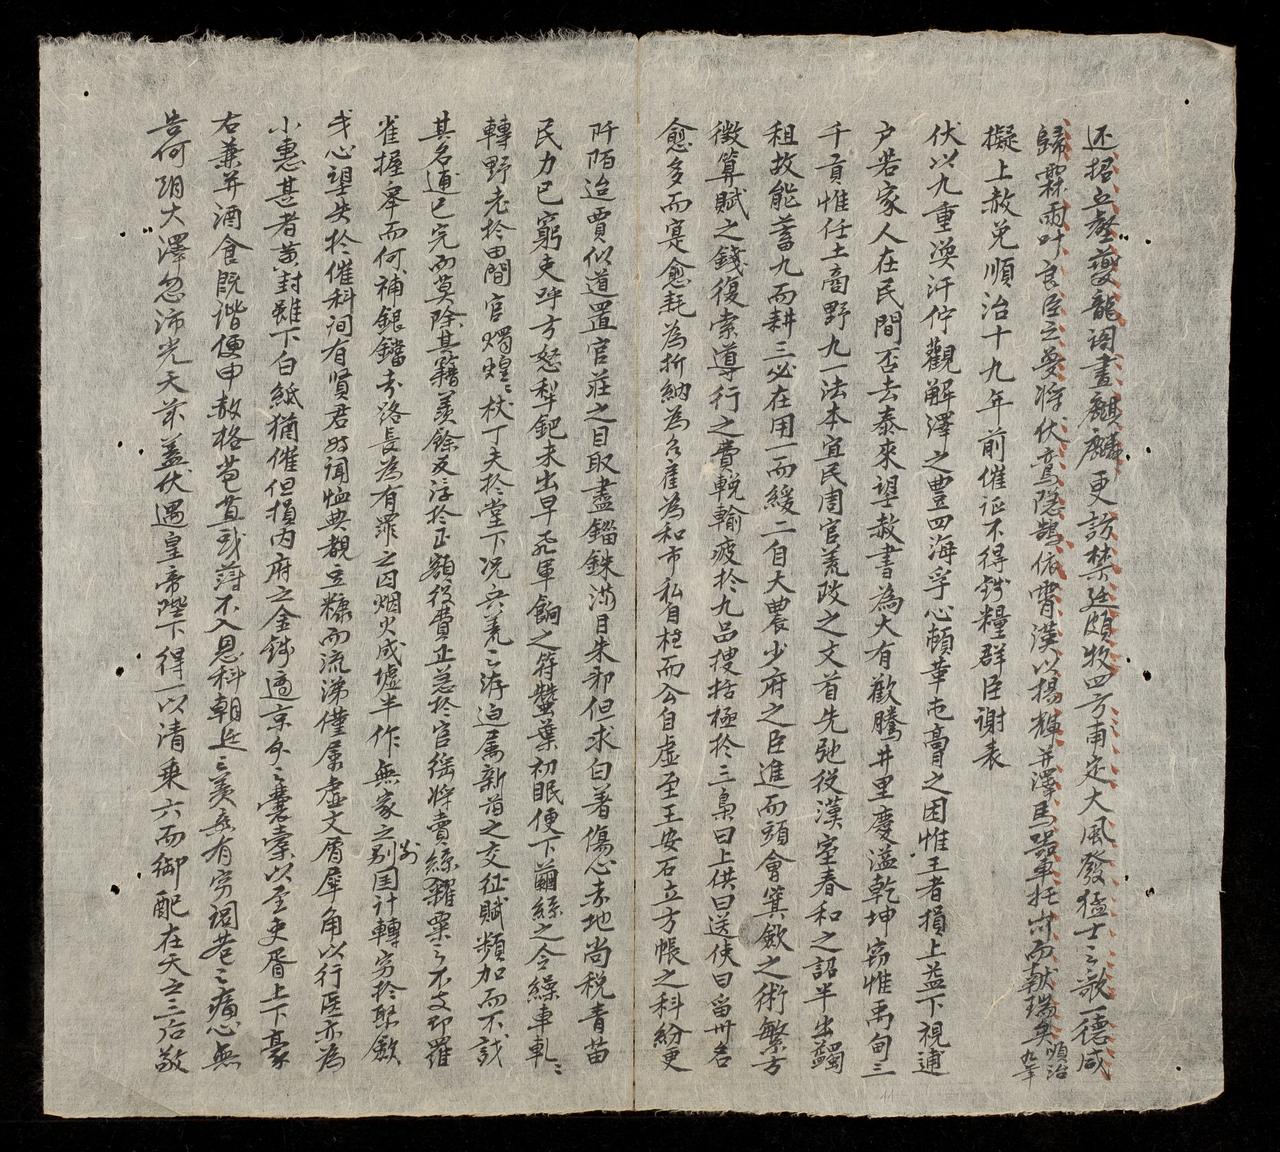 还招五壑夔龍调畫麒麟更訪禁廷頗牧四方甫定大風發猛士之歌一德咸
歸霖雨叶良臣之夢將伏鸞隐鵠依霄漢以揚輝并澤馬器車托岀而献瑞矣順治九年
擬上赦免順治十九年前催征不得錢糧群臣謝表
伏以九重渙汗佇觀解澤之豊四海孚心頓革屯膏之困惟王者損上益下視逋
户若家人在民間否去泰來望赦書為大有歡騰井里慶溢乾坤窃惟禹甸三
千貢惟任土商野九一法本宜民周官荒政之文首先弛役漢室春和之詔半出蠲
租故能蓄九而耕三必在用一而緩二自大農少府之臣進而頭會箕歛之術繁方
徵算賦之錢復索導行之費輓輸疲於九品搜括極於三梟曰上供曰送使曰留州名
愈多而寔愈耗為折納為名雇為和市私自枉而公自虚至王安石立方帳之科紛更
阡陌迨賈似道置官莊之目取盡錙銖滿目朱邨但求白著傷心赤地尚税青苗
民力已窮吏呼方怒犁鈀未出早飛軍餉之符蠶葉初眠便下繭絲之令繰車軋ミ
轉野老於田間官燭煌ミ杖丁夫於堂下况兵荒之洊迫属新舊之交征賦頻加而不試
其名逋已完而莫除其籍羨餘反浮於正額役費正急於官徭將賣絲糶粟之不支即羅
雀握犖而何補銀鐺去洛長為有罪之囚烟火成墟半作無家之别國计轉穷於聚歛
民心望失於催科間有賢君時调恤典覩立糠而流涕僅属虚文屑犀角以行医亦為
小惠甚者黄封雖下白紙猶催但損内府之金錢適京外之囊槖以至吏胥上下豪
右兼并酒食既谐便申赦格苞苴或薄不入恩科朝廷之美意有穷调巷之痛心無
告何期大澤忽沛光天茲盖伏遇皇帝陛下得一以清乘六而御配在天之三后敬